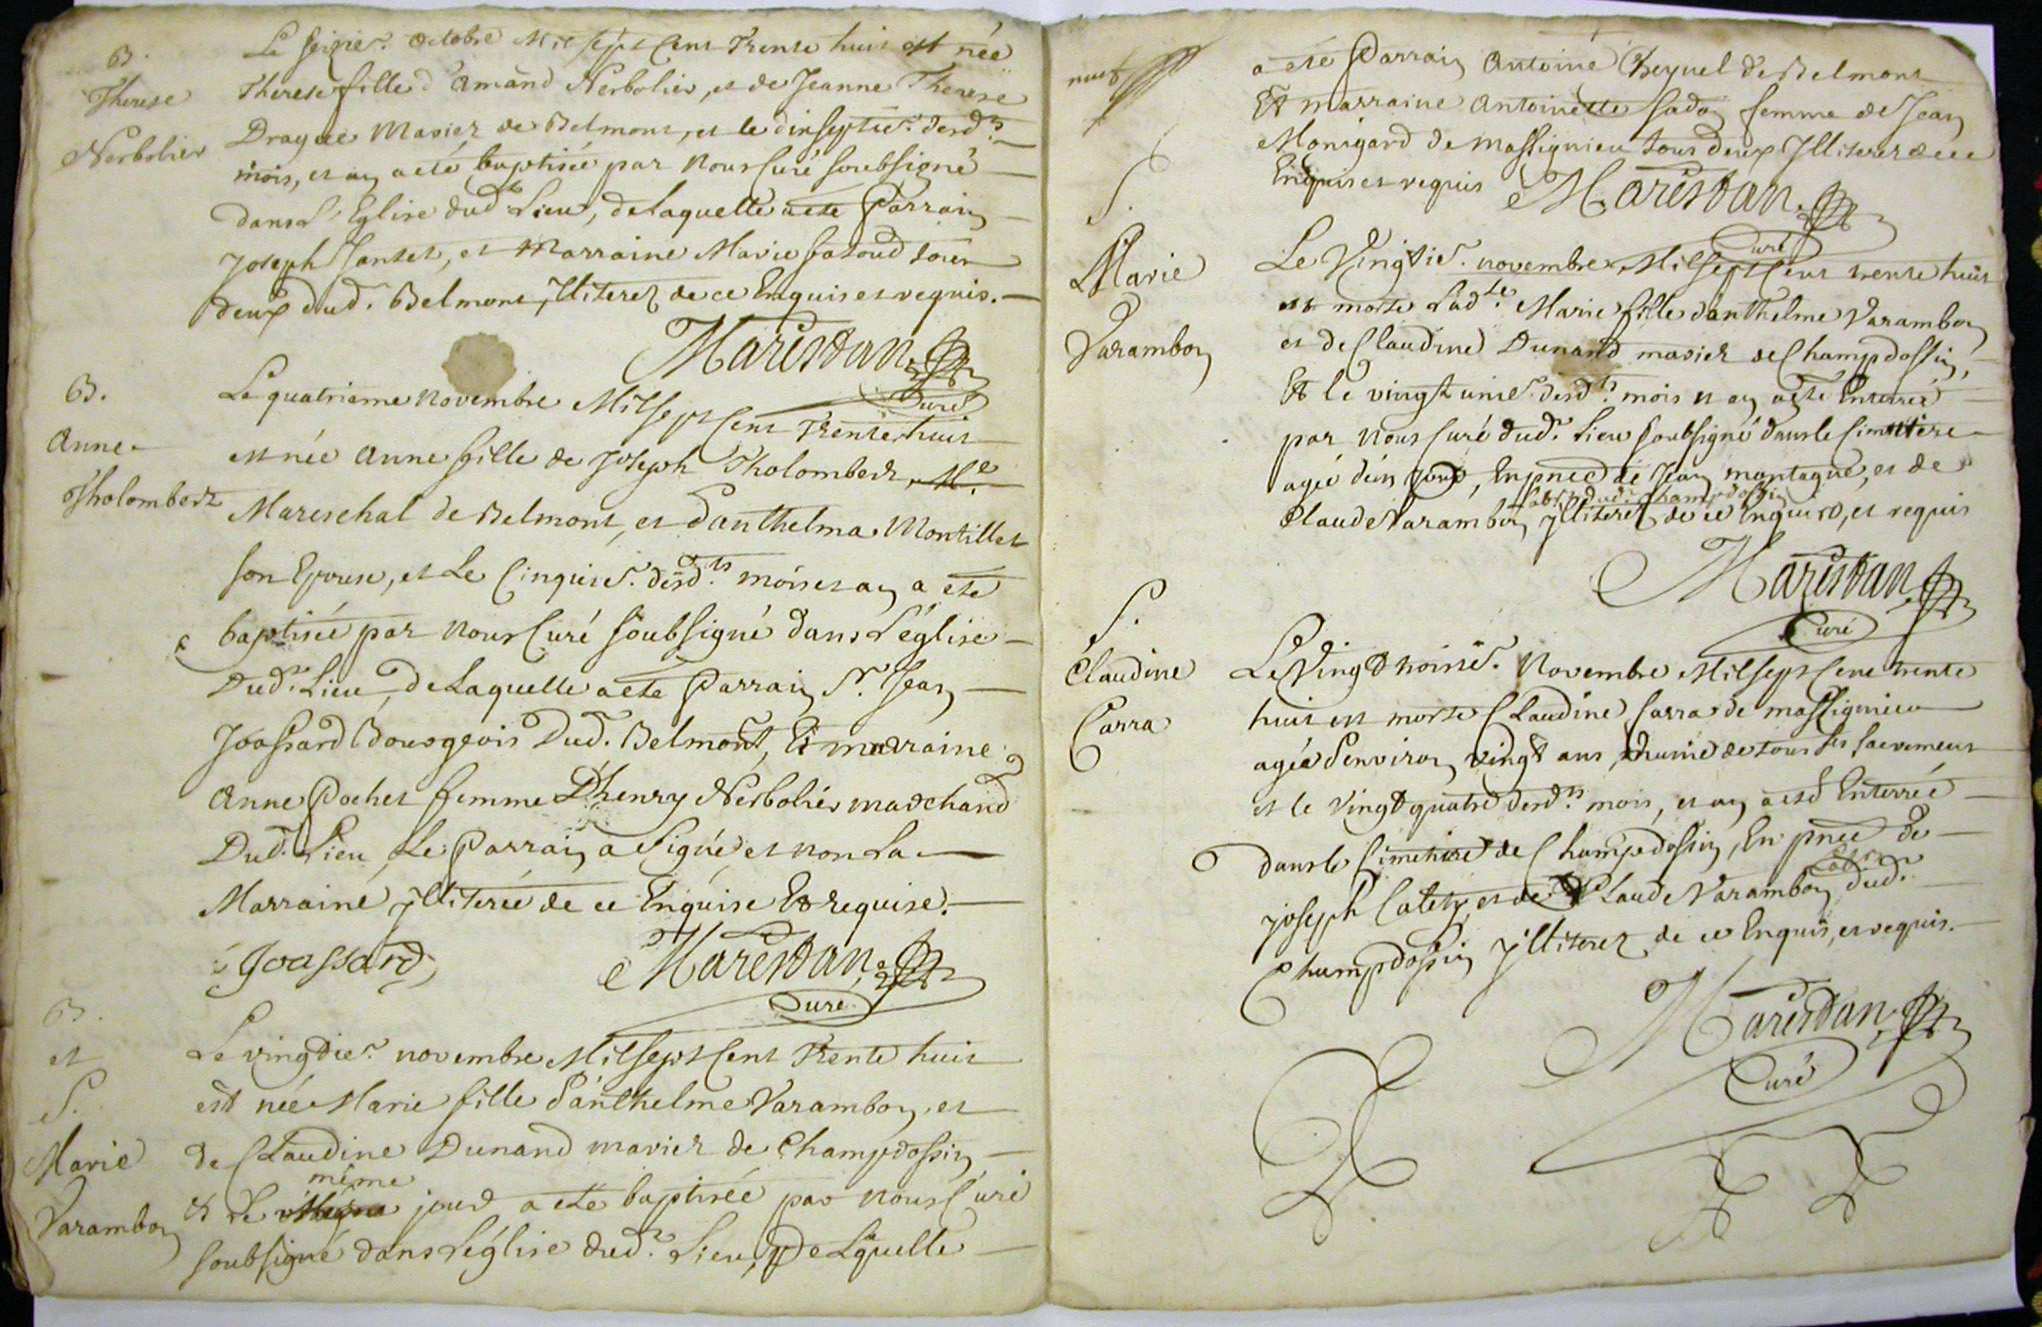 B.
Therese
Nerbolier
Le seizie.e octobre Mil sept Cent Trente huit est née
Therese fille d'Amand Nerbolier, et de Jeanne Therese
Dragué Mariez de Belmont, et le dixseptie.e desd.ts
mois, et an a eté baptisée par Nous Curé soubsigné
dans L'Eglise dud.t Lieu, de Laquelle a eté Parrain
Joseph Jantet, et Marraine Marie fatoud tous
deux dud. Belmont, Illiterez de ce Enquis et requis.
Marestan
Curé
B.
Anne
Tholombert
Le quatrieme Novembre Mil sept Cent Trente huit
est née Anne fille de Joseph Tholombert, M.e
Mareschal de Belmont, et D'anthelma Montillet
son Epouse, et Le Cinquie.e desd.ts mois et an a eté
baptisée par Nous Curé soubsigné dans L'église
Dud. Lieu, de Laquelle a eté Parrain S.r Jean
Joassard Bourgeois Dud. Belmont, Et marraine
Anne Pochet femme D'henry Nerbolier marchand
Dud. Lieu, Le Parrain a signé et non La
Marraine Illiterée de ce Enquise Et requise.
Joassard
Marestan
Curé
B.
et
S.
Marie
Varambon
Le vingtie.e novembre Mil sept Cent Trente huit
est née Marie fille d'anthelme Varambon et
de Claudine Dunand mariez de Champdossin
même
et le jour a eté baptisée par Nous Curé
soubsigné dans L'église dud. Lieu, De Laquelle
a eté Parrain Antoine Cheynel de Belmont
Et marraine Antoinette sadon femme de Jean
Monigard de massignieu tous deux Illiterez de ce
Enquis et requis Marestan
Curé
S.
Marie
Varambon
Le Vingtie.e novembre Mil sept Cent trente huit
est morte Lad.te Marie fille d'anthelme Varambon
et de Claudine Dunand mariez de Champdossin,
Et le vingt unie.e desd.ts mois et an a eté Enterrée
par Nous Curé dud. Lieu soubsigné dans le Cimetiere
agée d'un jour, En pnce de Jean montagne, et de
Claude Varambon dud. Champdossin Illiterez de ce Enquis, et requis
Marestan
Curé
S.
Claudine
Carra
Le Vingt troisie.e Novembre Mil sept Cent trente
huit est morte Claudine Carra de massignieu
agée d'environ vingt ans, munie de tous les sacremens
et le vingt quatre desd.ts mois, et an a eté Enterrée
dans le Cimetiere de Champdossin, En pnce de
Joseph Catet, et de Claude Varambon dud.
Champdossin Illiterez de ce Enquis, et requis.
Marestan
Curé